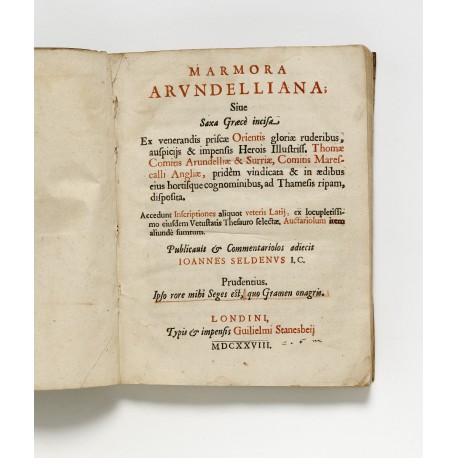 MARMORA
ARVNDELLIANA;
Siue
Saxa Græcè incisa
Ex venerandis priscæ Orientis gloriæ ruderibus,
auspicijs & impensis Herois Illustriss. Thomæ
Comitis Arundelliæ & Surriæ, Comitis Mares-
calli Angliæ, pridem vindicata & in ædibus
eius hortisque cognominibus, ad Thamesis ripam,
disposita.
Accedunt Inscriptiones aliquot veteris Latij, ex locupletissi-
mo eiusdem Vetustatis Thesauro selectæ, Auctariolum item
aliundè sumtum.
Publicauit & Commentariolos adiecit
IOANNES SELDENVS I.C.
Prudentius.
Ipso rore mihi Seges est, quo Gramen onagris.
LONDINI,
Typis & impensis Guilielmi Stanesbeij
MDCXXVIII.